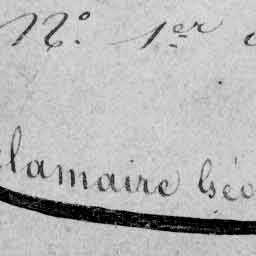 N.° 1.er
lamaire Géo